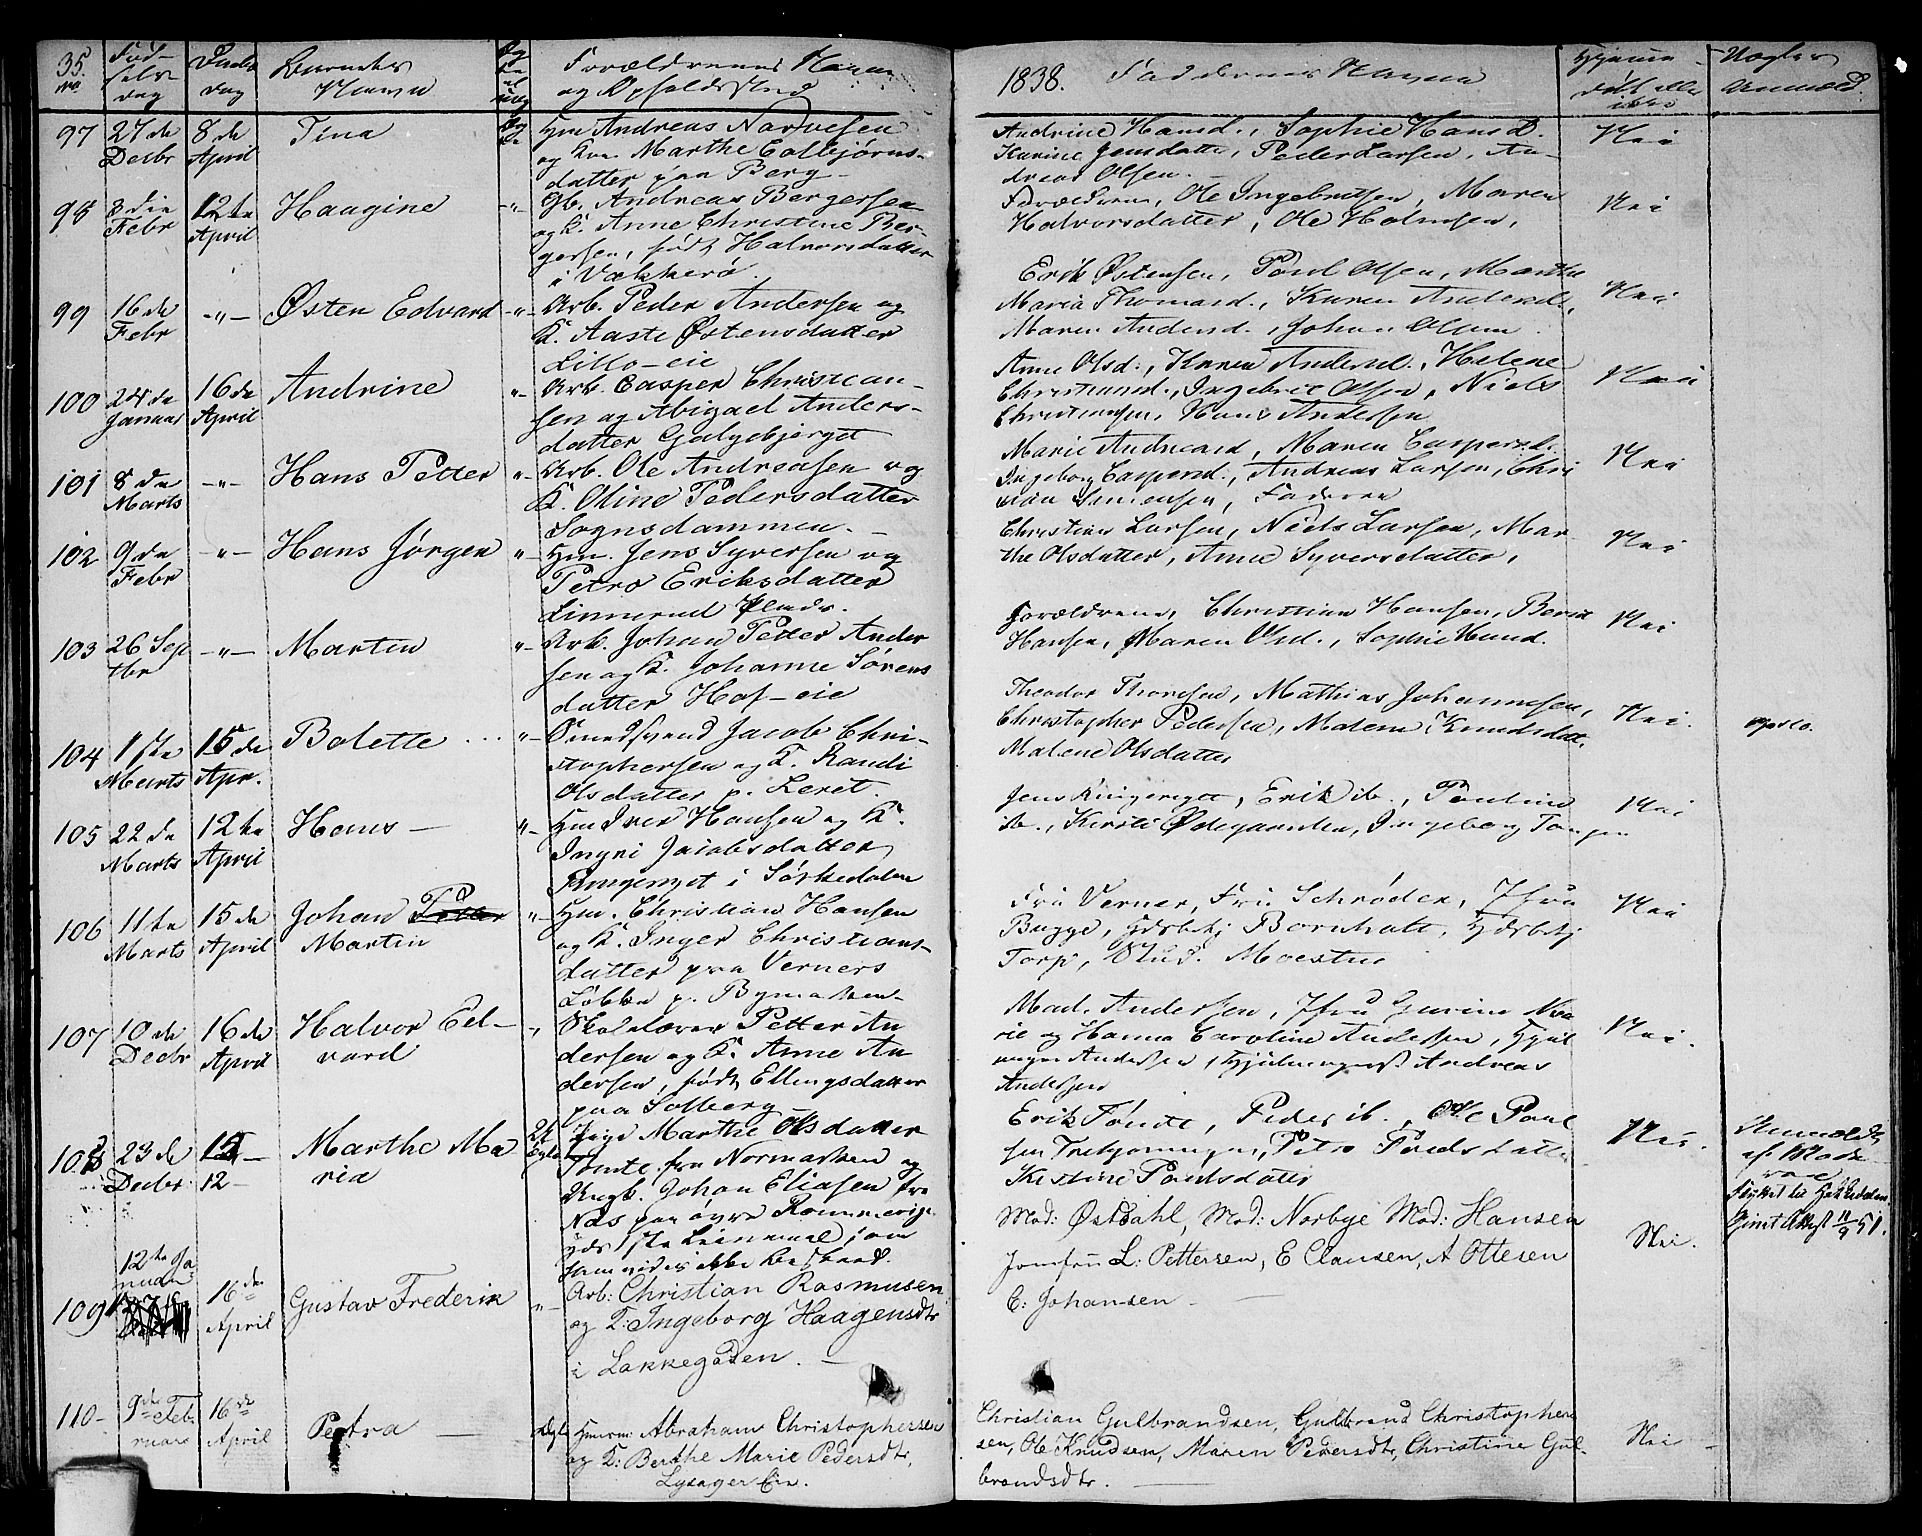 35.
No.
Fød-
selsdag
Daabs
dag
Barnets
Navn
Forældrenes Navn
og Opholdssted
1838. Faddernes Navne
Hjemme-
døbt eller
ikke
Nogler
Anmeld.
97 27de Decbr 8de April Tina
Hm Andreas Narvesen
og Kone Marthe Colbjørns-
datter paa Berg
Andrine Hansd., Sophie Hansd.
Karine Jensdatter, Peder Larsen, An-
dreas Olsen.
Nei
98 3die Febr 12te April Haagine -"-
Gb. Andreas Bergersen
og K. Anne Christine Ber-
gersen, født Halvorsdatter
i Vækkerø.
Forældrene, Ole Ingebretsen, Maren
Halvorsdatter, Ole Holmsen,
Nei
99 16de Febr -"- Østen Edvard -"-
Arb. Peder Andersen og
K. Aaste Østensdatter
Lillo-eie
Erik Østensen, Poul Olsen, Marthe
Maria Thomasd., Karen Andersd.,
Maren Andersd., Johan Olsen.
Nei
100 24de Januar 16de April Andrine "-
Arb. Casper Christian-
sen og Abigael Anders-
datter Galgebjerget
Anne Olsd., Karen Andersd., Helene
Christiansd., Ingebret Olsen, Niels
Christiansen, Hans Andersen
Nei
101 8de Marts -"- Hans Petter "-
Arb. Ole Andreasen og
K. Oline Pedersdatter
Sognsdammen.
Marie Andreasd, Maren Caspersd.
Ingeborg Caspersd., Andreas Larsen, Chri
stian Simensen, Faderen
Nei
102 9de Febr -"- Hans Jørgen "-
Hm. Jens Syversen og
Petro Eriksdatter
Linnerud Plads.
Christian Larsen, Niels Larsen, Mar
the Olsdatter, Anne Syversdatter,
Nei
103 26 Sep
tbr -"- Martin "-
Arb. Johan Petter Ander
sen og K. Johanne Sørens
datter Hof-eie
Forældrene, Christian Hansen, Berit
Hansen, Maren Olsd., Sophie Hansd.
Nei
104 1ste Marts 15de Apr. Bolette "-
Smedsvend Jacob Chri-
stophersen og K. Randi
Olsdatter p. Leret.
Theodor Thoresen, Mathias Johannesen,
Christopher Pedersen, Malene Knudsdatt.
Malene Olsdatter
Nei. Opslo.
105 22de Marts 12te April Hans - "-
Hm Iver Hansen og K.
Ingri Jacobsdatter
Ringeriget i Sørkedalen
Jens Ringeriget, Erik ib., Pauline
ib., Kirsti Ødegaarden, Ingeborg Tangen
Nei
106 11te Marts 15de April Johan Petter
Martin "-
Hm. Christian Hansen
og K. Inger Christians-
datter paa Verners
Løkke p. Bymarken-
Fru Verner, Fru Schrøder, Jfru
Bugge, Bornholt,
Torp, Stud. Moestue
Nei
107 10de Decbr 16de April Halvor Ed-
vard "
Skolelærer Petter An
dersen og K. Anne An
dersen, født Ellingsdatter
paa Solberg
Mad. Andersen, Jfru Gurine Ma
rie og Hanna Caroline Andersen, Hjul
mager Andersen, Hjulmagers Andreas
Andersen
Nei.
108 23de Decbr 15-
12- Marthe Ma
ria
Uægte
Pige Marthe Olsdatter
Tomte fra Normarken og
Ungk. Johan Eliasen fra
Næs paa øvre Romerige
hds 1ste Leiermaal som
han vides ikke beskeed.
Erik Tømte, Peder ib., Ole Poul
sen Trehjørningen, Petro Poulsdatter
Kirstine Poulsdatter
Nei.
Anmeldt
af
Flyttet til Hakkedalen
Givet Attest 11/9 51.
109 12te Ja
nuar 16de April Gustav Frederik "-
Arb: Christian Rasmusen
og K: Ingeborg Haagensdtr
i Lakkegaden. -
Mad: Østdahl, Mad: Norbye Mad: Hansen
Jomfru L: Pettersen, E Clausen, A Ottesen
C: Johansen -
Nei.
110- 9de Feb
ruar 16de April Petra - Ægte
Huusm: Abraham Christophersen
og K: Berthe Marie Pedersdtr,
Lysager Eie.
Christian Gulbrandsen, Gulbrand Christopher
sen, Ole Knudsen, Maren Pedersdtr, Christine Gul-
brandsdtr.
Nei -